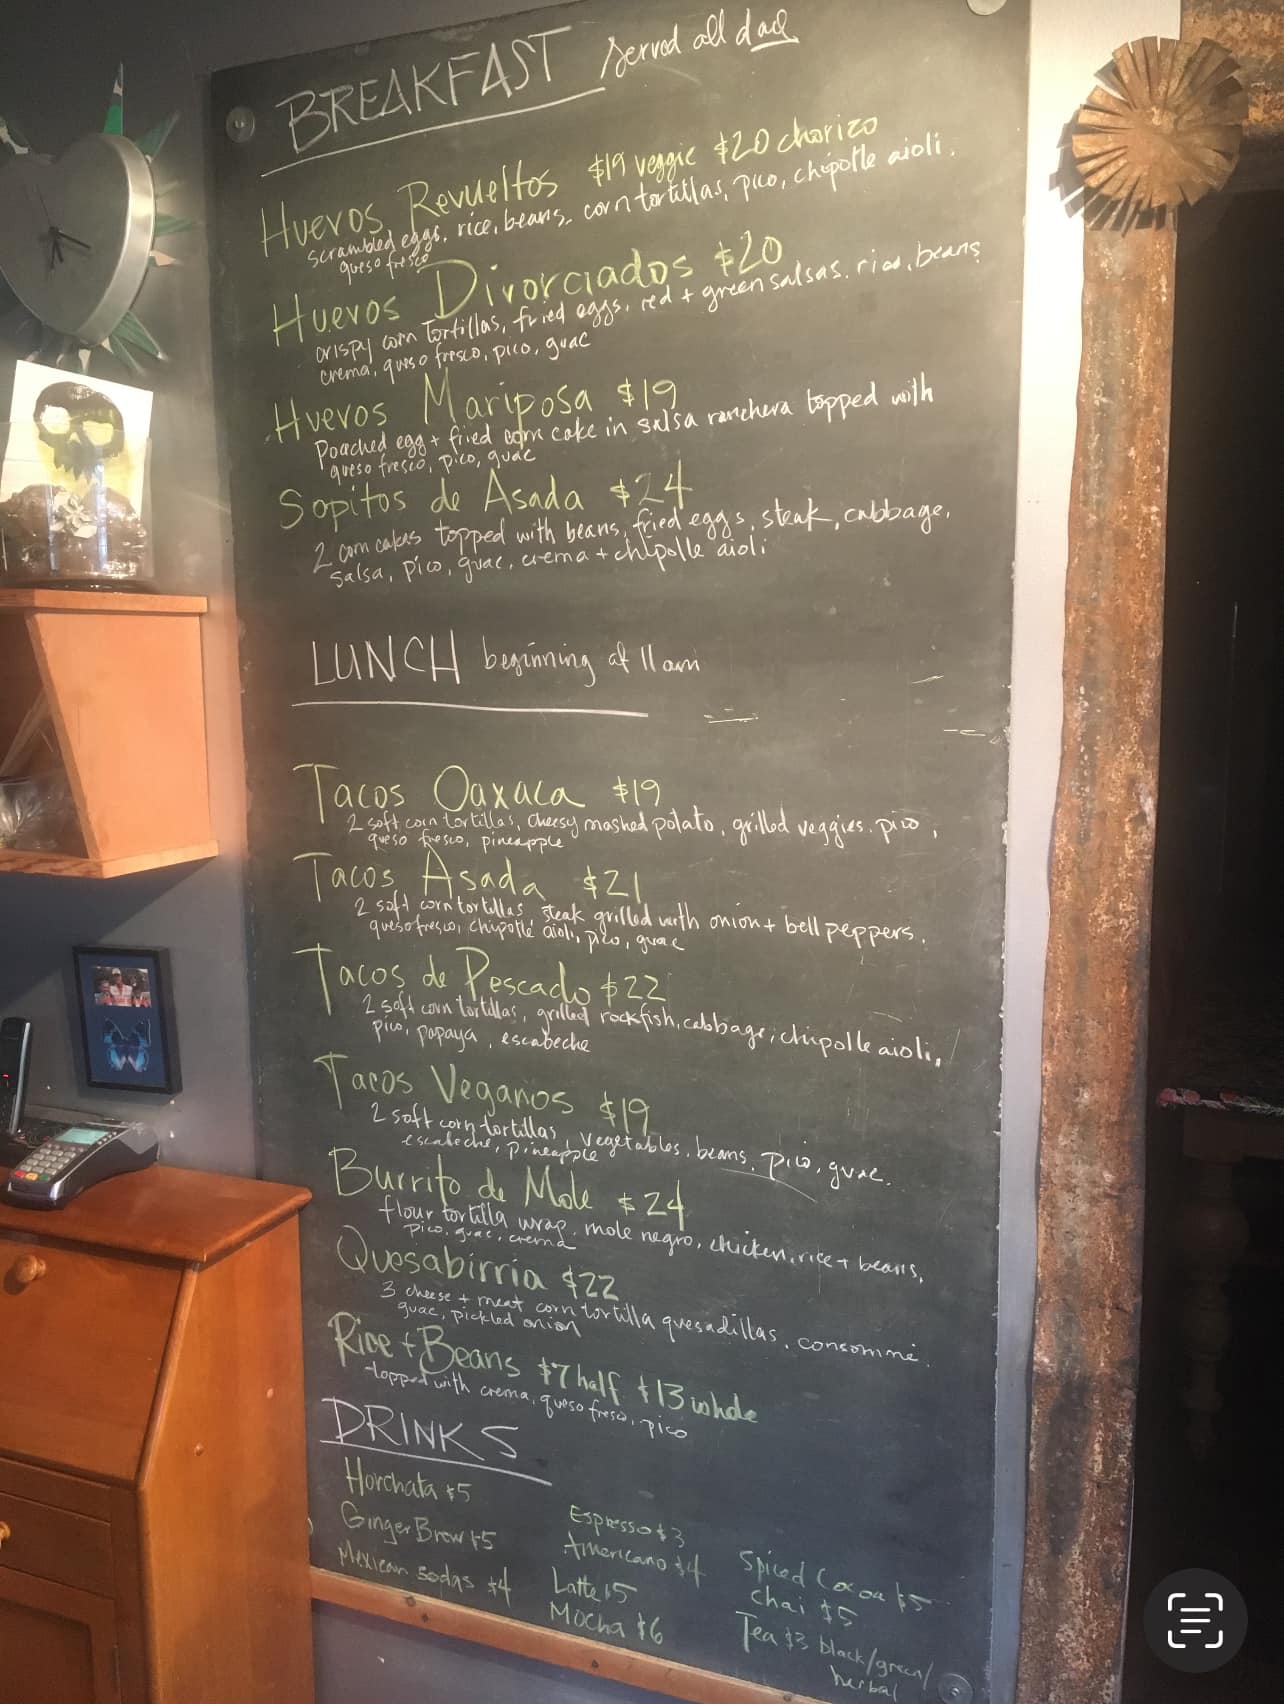 BREAKFAST served all day
Huevos Revueltos $19 veggie $20 chorizo
scrambled eggs, rice, beans, corn tortillas, pico, chipotle aioli,
queso fresco
Huevos Divorciados $20
crispy corn tortillas, fried eggs, red + green salsas, rice, beans
crema, queso fresco, pico, guac
Huevos Mariposa $19
Poached egg + fried corn cake in salsa ranchera topped with
queso fresco, pico, guac
Sopitos de Asada $24
2 corn cakes topped with beans, fried eggs, steak, cabbage,
salsa, pico, guac, crema + chipotle aioli
LUNCH beginning at 11am
Tacos Oaxaca $19
2 soft corn tortillas, cheesy mashed potato, grilled veggies, pico,
queso fresco, pineapple
Tacos Asada $21
2 soft corn tortillas, steak grilled with onion + bell peppers,
queso fresco, chipotle aioli, pico, guac
Tacos de Pescado $22
2 soft corn tortillas, grilled rockfish, cabbage, chipotle aioli,
pico, papaya, escabeche
Tacos Veganos $19
2 soft corn tortillas, vegetables, beans, pico, guac.
escabeche, pineapple
Burrito de Mole $24
flour tortilla wrap, mole negro, chicken, rice + beans,
pico, guac, crema
Quesabirria $22
3 cheese + meat corn tortilla quesadillas, consommé,
guac, pickled onion
Rice + Beans $7 half $13 whole
-topped with crema, queso fresco, pico
DRINKS
Horchata $5
Ginger Brew $5
Mexican sodas $4
Espresso $3
Americano $4
Latte $5
Mocha $6
Spiced Cocoa $5
chai $5
Tea $3 black/green/
herbal